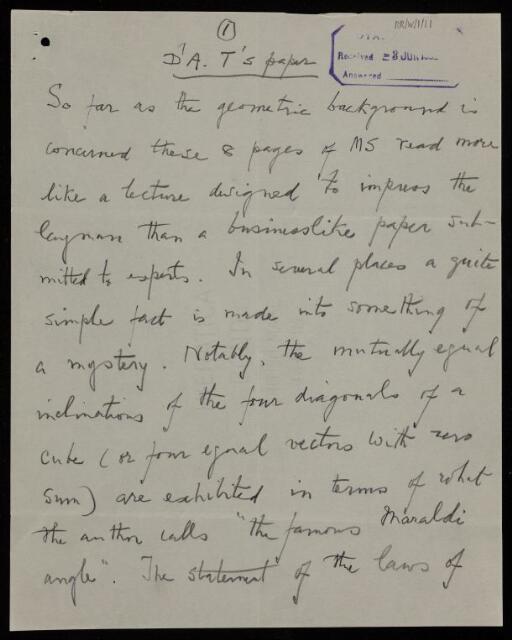 RR/W/1/11
1
D'A. T's paper
Received 28 JUN
Answered
So far as the geometric background is
concerned these 8 pages of MS read more
like a lecture designed to impress the
layman than a businesslike paper sub-
mitted to experts. In several places a quite
simple fact is made into something of
a mystery. Notably, the mutually equal
inclinations of the four diagonals of a
cube (or four equal vectors with zero
sum) are exhibited in terms of what
the author calls "the famous Maraldi
angle". The statement of the laws of